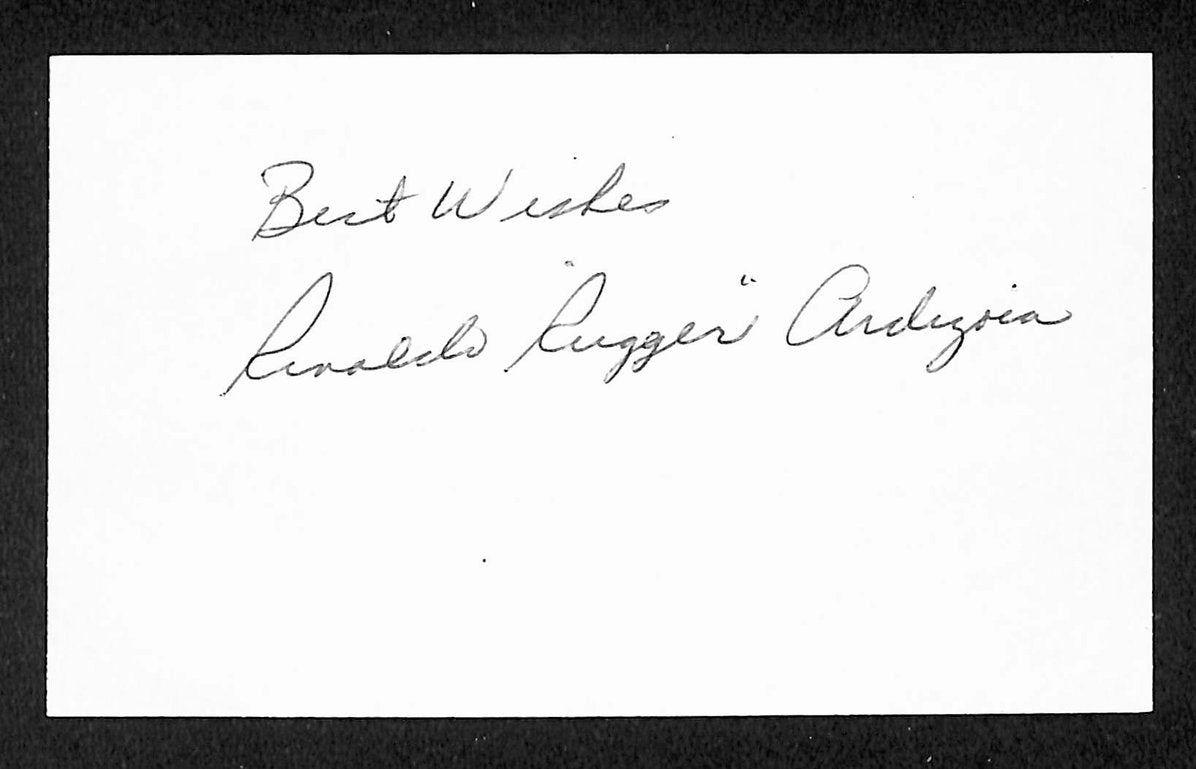 Best Wishes
Rinaldo "Rugger" Ardizoia